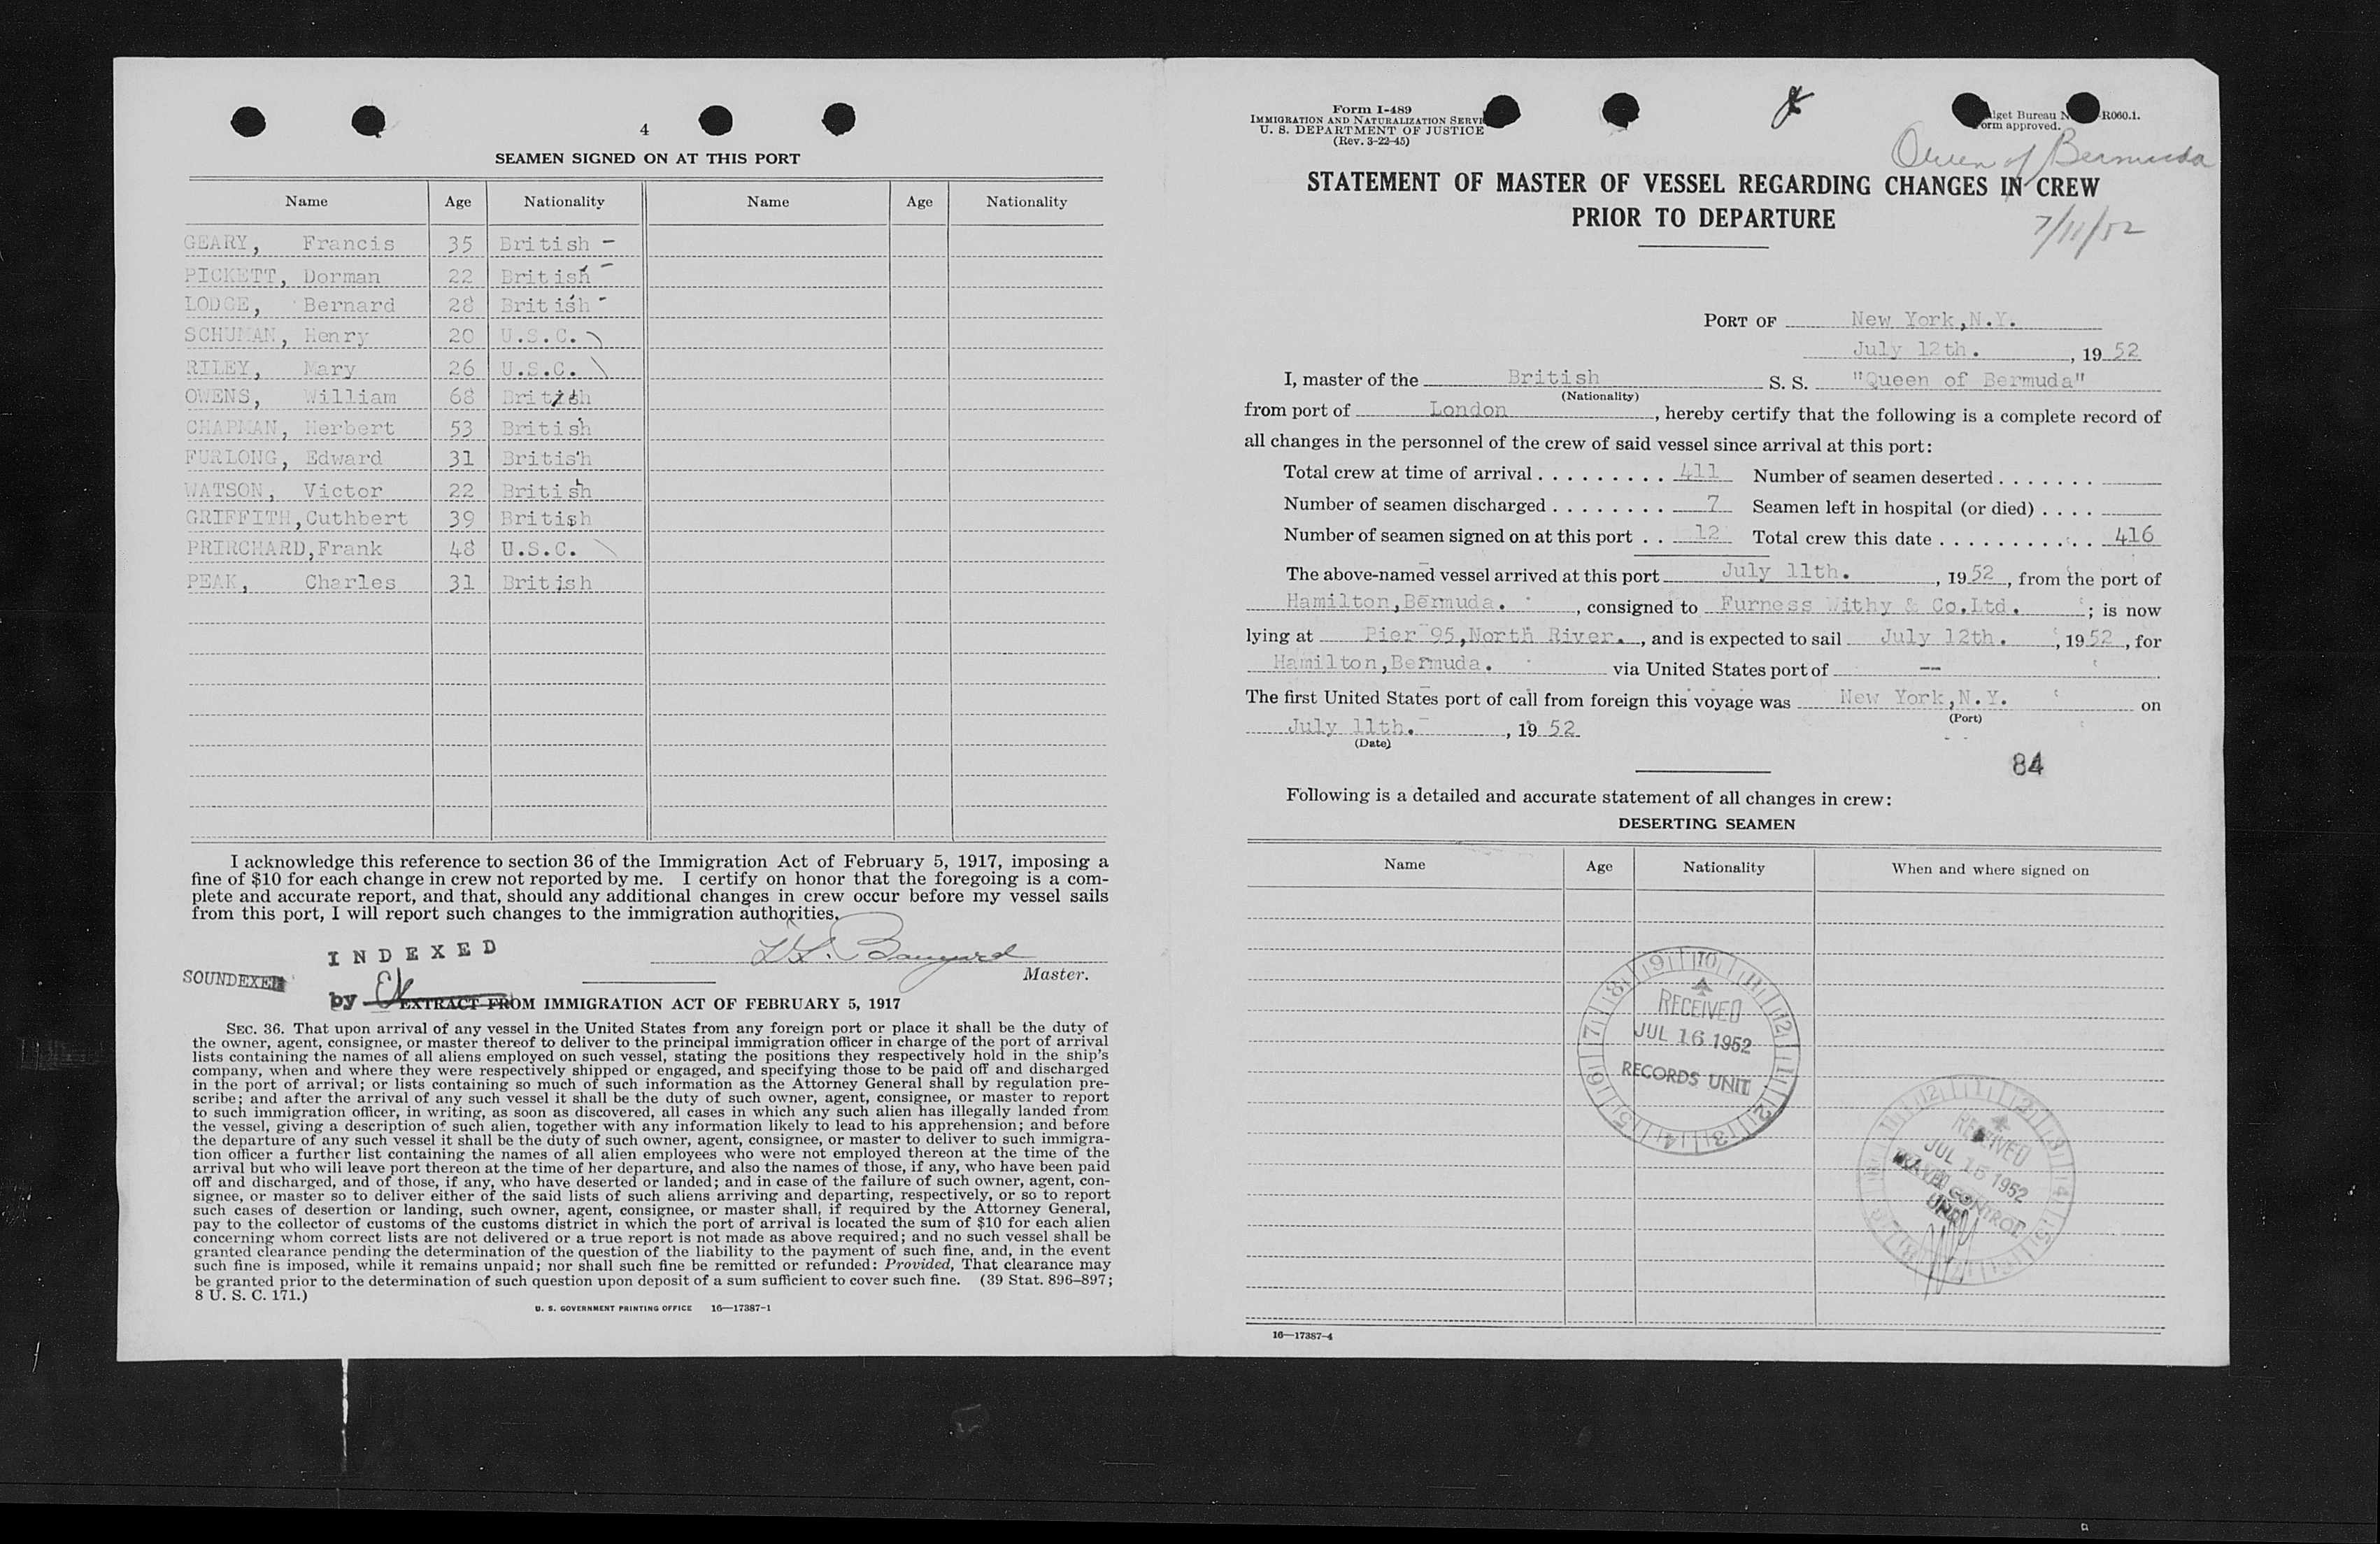 4
SEAMEN SIGNED ON AT THIS PORT
Name Age Nationality Name Age Nationality
GEARY, Francis 35 British -
PICKETT, Dorman 22 British -
LODGE, Bernard 28 British -
SCHUMAN, Henry 20 U.S.C. \
RILEY, Mary 26 U.S.C. \
OWENS, William 68 British
CHAPMAN, Herbert 53 British
FURLONG, Edward 31 British
WATSON, Victor 22 British
GRIFFITH, Cuthbert 39 British
PRIRCHARD, Frank 48 U.S.C. \
PEAK, Charles 31 British
I acknowledge this reference to section 36 of the Immigration Act of February 5, 1917, imposing a
fine of $10 for each change in crew not reported by me. I certify on honor that the foregoing is a com-
plete and accurate report, and that, should any additional changes in crew occur before my vessel sails
from this port, I will report such changes to the immigration authorities.
INDEXED
SOUNDEXED
Master.
by EK
EXTRACT FROM IMMIGRATION ACT OF FEBRUARY 5, 1917
SEC. 36. That upon arrival of any vessel in the United States from any foreign port or place it shall be the duty of
the owner, agent, consignee, or master thereof to deliver to the principal immigration officer in charge of the port of arrival
lists containing the names of all aliens employed on such vessel, stating the positions they respectively hold in the ship's
company, when and where they were respectively shipped or engaged, and specifying those to be paid off and discharged
in the port of arrival; or lists containing so much of such information as the Attorney General shall by regulation pre-
scribe; and after the arrival of any such vessel it shall be the duty of such owner, agent, consignee, or master to report
to such immigration officer, in writing, as soon as discovered, all cases in which any such alien has illegally landed from
the vessel, giving a description of such alien, together with any information likely to lead to his apprehension; and before
the departure of any such vessel it shall be the duty of such owner, agent, consignee, or master to deliver to such immigra-
tion officer a further list containing the names of all alien employees who were not employed thereon at the time of the
arrival but who will leave port thereon at the time of her departure, and also the names of those, if any, who have been paid
off and discharged, and of those, if any, who have deserted or landed; and in case of the failure of such owner, agent, con-
signee, or master so to deliver either of the said lists of such aliens arriving and departing, respectively, or so to report
such cases of desertion or landing, such owner, agent, consignee, or master shall, if required by the Attorney General,
pay to the collector of customs of the customs district in which the port of arrival is located the sum of $10 for each alien
concerning whom correct lists are not delivered or a true report is not made as above required; and no such vessel shall be
granted clearance pending the determination of the question of the liability to the payment of such fine, and, in the event
such fine is imposed, while it remains unpaid; nor shall such fine be remitted or refunded: Provided, That clearance may
be granted prior to the determination of such question upon deposit of a sum sufficient to cover such fine. (39 Stat. 896–897;
8 U. S. C. 171.)
U. S. GOVERNMENT PRINTING OFFICE 16—17387-1
Form I-489
IMMIGRATION AND NATURALIZATION SERVI
U. S. DEPARTMENT OF JUSTICE
(Rev. 3-22-45)
Bureau R060.1.
approved.
Queen of Bermuda
STATEMENT OF MASTER OF VESSEL REGARDING CHANGES IN CREW
PRIOR TO DEPARTURE
7/11/52
PORT OF New York, N.Y.
July 12th. , 19 52
I, master of the British S. S. "Queen of Bermuda"
(Nationality)
from port of London , hereby certify that the following is a complete record of
all changes in the personnel of the crew of said vessel since arrival at this port:
Total crew at time of arrival . . . . . . . . . 411 Number of seamen deserted . . . . . . .
Number of seamen discharged . . . . . . . . 7 Seamen left in hospital (or died) . . . .
Number of seamen signed on at this port . . 12 Total crew this date . . . . . . . . . . . 416
The above-named vessel arrived at this port July 11th. , 19 52 , from the port of
Hamilton, Bermuda. , consigned to Furness Withy & Co.Ltd. ; is now
lying at Pier 95, North River. , and is expected to sail July 12th. , 19 52 , for
Hamilton, Bermuda. via United States port of --
The first United States port of call from foreign this voyage was New York, N.Y. on
(Port)
July 11th. , 19 52
(Date)
84
Following is a detailed and accurate statement of all changes in crew:
DESERTING SEAMEN
Name Age Nationality When and where signed on
RECEIVED
JUL 16 1952
RECORDS UNIT
RECEIVED
JUL 15 1952
TRAVEL CONTROL
UNIT
16—17387-4